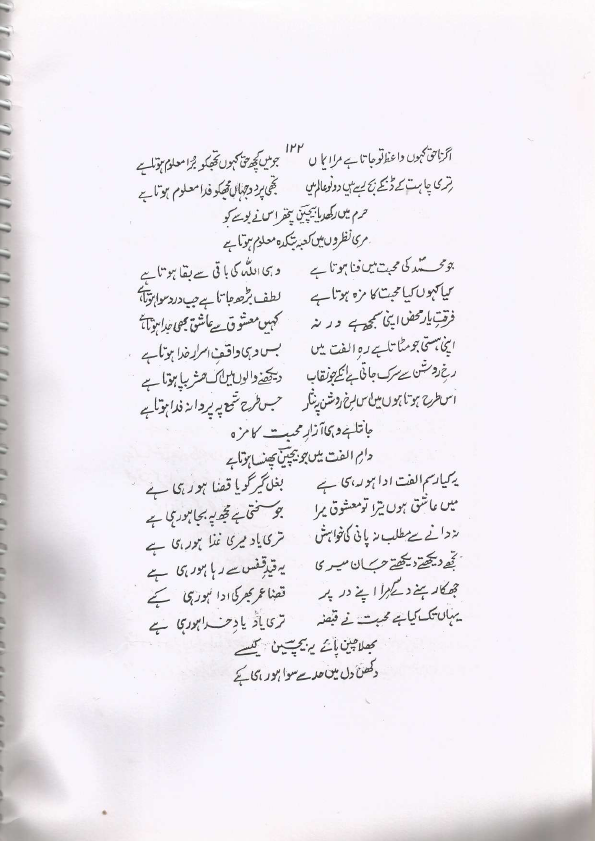 ۱۲۲
اگر ناحق کہوں واعظ تو جاتا ہے مرا ایماں جو میں کچھ حق کہوں تجھکو بُرا معلوم ہوتا ہے
تری چاہت کے ڈنکے بج رہے ہیں دونو عالم میں تجھی پر دو جہاں مجھکو فدا معلوم ہوتا ہے
حرم میں رکھدیا بیچین پتھر اس نے بوسے کو
مری نظروں میں کعبہ بتکدہ معلوم ہوتا ہے
جو محمدؐ کی محبت میں فنا ہوتا ہے وہی اللہ کی باقی سے بقا ہوتا ہے
کیا کہوں کیا محبت کا مزہ ہوتا ہے لطف بڑھ جاتا ہے جب درد سوا ہوتا ہے
فرقتِ یار محض اپنی سمجھ ہے ورنہ کہیں معشوق سے عاشق بھی جدا ہوتا ہے
اپنی ہستی جو مٹاتا ہے رہِ الفت میں بس وہی واقفِ اسرارِ خدا ہوتا ہے
رخِ روشن سے سرک جاتی ہے انکے جو نقاب دیکھنے والوں میں اک حشر بپا ہوتا ہے
اس طرح ہوتا ہوں میں اس رخِ روشن پہ نثار جس طرح شمع پہ پروانہ فدا ہوتا ہے
جانتا ہے وہی آزارِ محبت کا مزہ
دامِ الفت میں جو بیچین پھنسا ہوتا ہے
یہ کیا رسم الفت ادا ہو رہی ہے بغل گیر گویا قضا ہو رہی ہے
میں عاشق ہوں تیرا تو معشوق میرا جو سختی ہے مجھ پہ بجا ہو رہی ہے
نہ دانے سے مطلب نہ پانی کی خواہش تری یاد میری غذا ہو رہی ہے
تجھے دیکھتے دیکھتے جان میری یہ قیدِ قفس سے رہا ہو رہی ہے
جھکا رہنے دے سر مرا اپنے در پر قضا عمر بھر کی ادا ہو رہی ہے
یہاں تک کیا ہے محبت نے قبضہ تری یاد یادِ خدا ہو رہی ہے
بھلا چین پائے یہ بیچین کیسے
دکھن دل میں حد سے سوا ہو رہی ہے